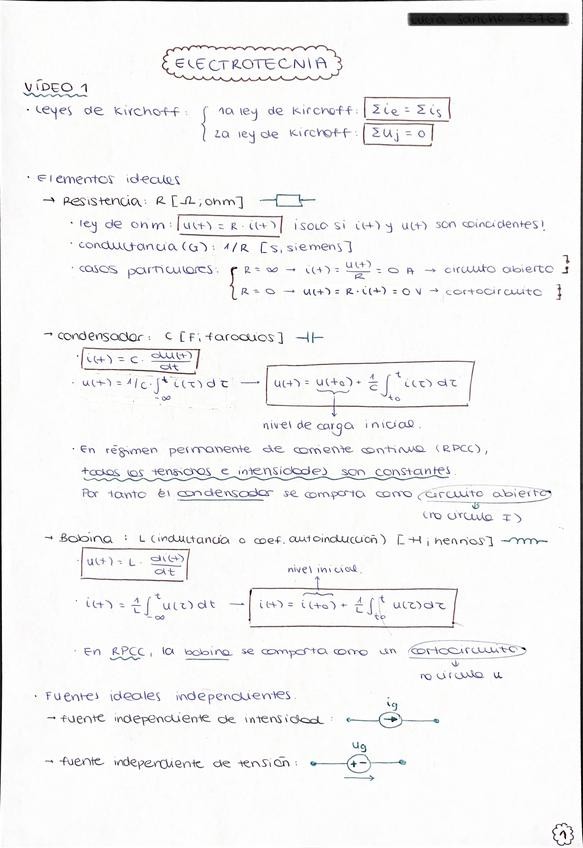 ELECTROTECNIA
VÍDEO 1
· Leyes de Kirchoff: { 1a ley de Kirchoff: Σie = Σis
2a ley de Kirchoff: Σuj = 0
· Elementos ideales
→ Resistencia: R [Ω, ohm]
· ley de ohm: u(t) = R · i(t) ¡solo si i(t) y u(t) son coincidentes!
· conductancia (G): 1/R [S, siemens]
· casos particulares: { R = ∞ → i(t) = u(t)/R = 0 A → circuito abierto
R = 0 → u(t) = R · i(t) = 0 V → cortocircuito
→ condensador: C [F, faradios]
· i(t) = C · du(t)/dt
· u(t) = 1/C · ∫_{-∞}^{t} i(τ) dτ → u(t) = u(t0) + 1/C ∫_{t0}^{t} i(τ) dτ
nivel de carga inicial.
· En régimen permanente de corriente continua (RPCC),
todas las tensiones e intensidades son constantes.
Por tanto el condensador se comporta como circuito abierto
(no circula I)
→ Bobina: L (inductancia o coef. autoinducción) [H, henrios]
· u(t) = L · di(t)/dt
nivel inicial.
· i(t) = 1/L ∫_{-∞}^{t} u(τ) dτ → i(t) = i(t0) + 1/L ∫_{t0}^{t} u(τ) dτ
· En RPCC, la bobina se comporta como un cortocircuito
no circula u
· Fuentes ideales independientes.
ig
→ fuente independiente de intensidad:
ug
→ fuente independiente de tensión: + -
1